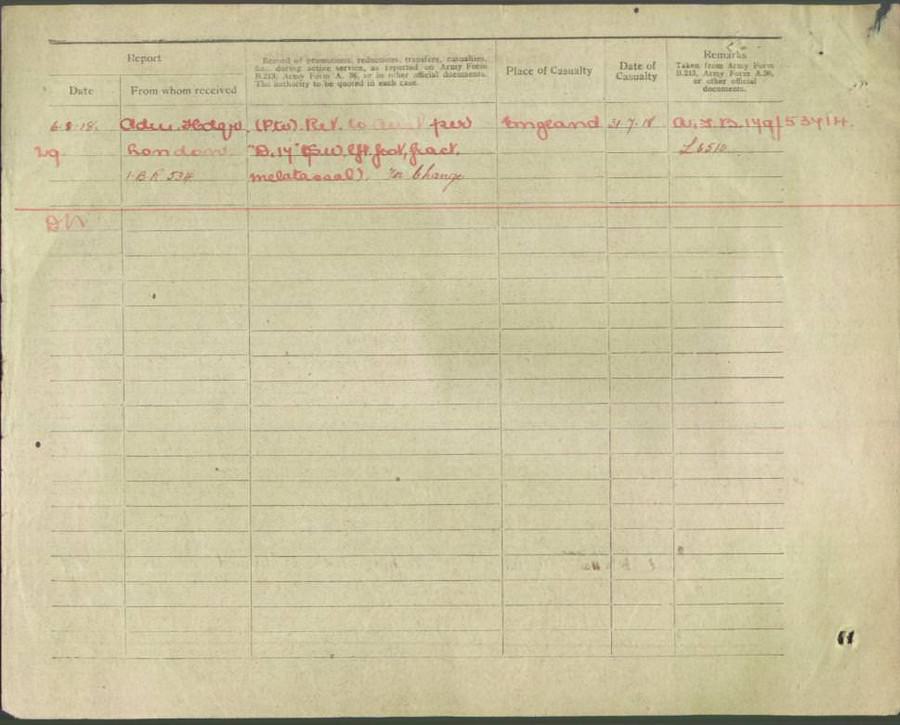 Report
Record of promotions, reductions, transfers, casualties, &c., during active service, as reported on Army Form B.213, Army Form A. 36, or in other official documents. The authority to be quoted in each case.
Place of Casualty
Date of Casualty
Remarks
Taken from Army Form B.213, Army Form A.36, or other official documents.
Date
From whom received
6.8.18. Adm. Hdqrs. (Pte) Ret. to Aust per England 31.7.18 A.F.B.179/5374/4.
London "D.14" (S.W. lft. foot, fract. L6510
metatassal). no Change